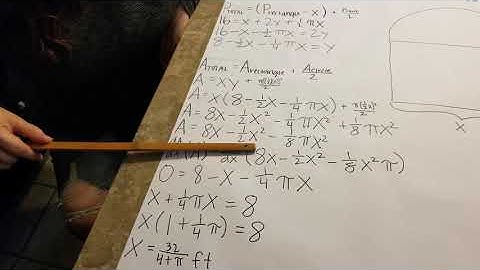 P_TOTAL = (P_rectangle - x) + P_circle/2
16 = x + 2y + ½πx
16 - x - ½πx = 2y
8 - ½x - ¼πx = y
A_TOTAL = A_rectangle + A_circle/2
A = xy + π(½x)²/2
A = x(8 - ½x - ¼πx) + π(½x)²/2
A = 8x - ½x² - ¼πx² + ⅛πx²
A = 8x - ½x² - ⅛πx²
(A) dx (8x - ½x² - ⅛x²π)
0 = 8 - x - ¼πx
x + ¼πx = 8
x(1 + ¼π) = 8
x = 32/(4+π) ft
x